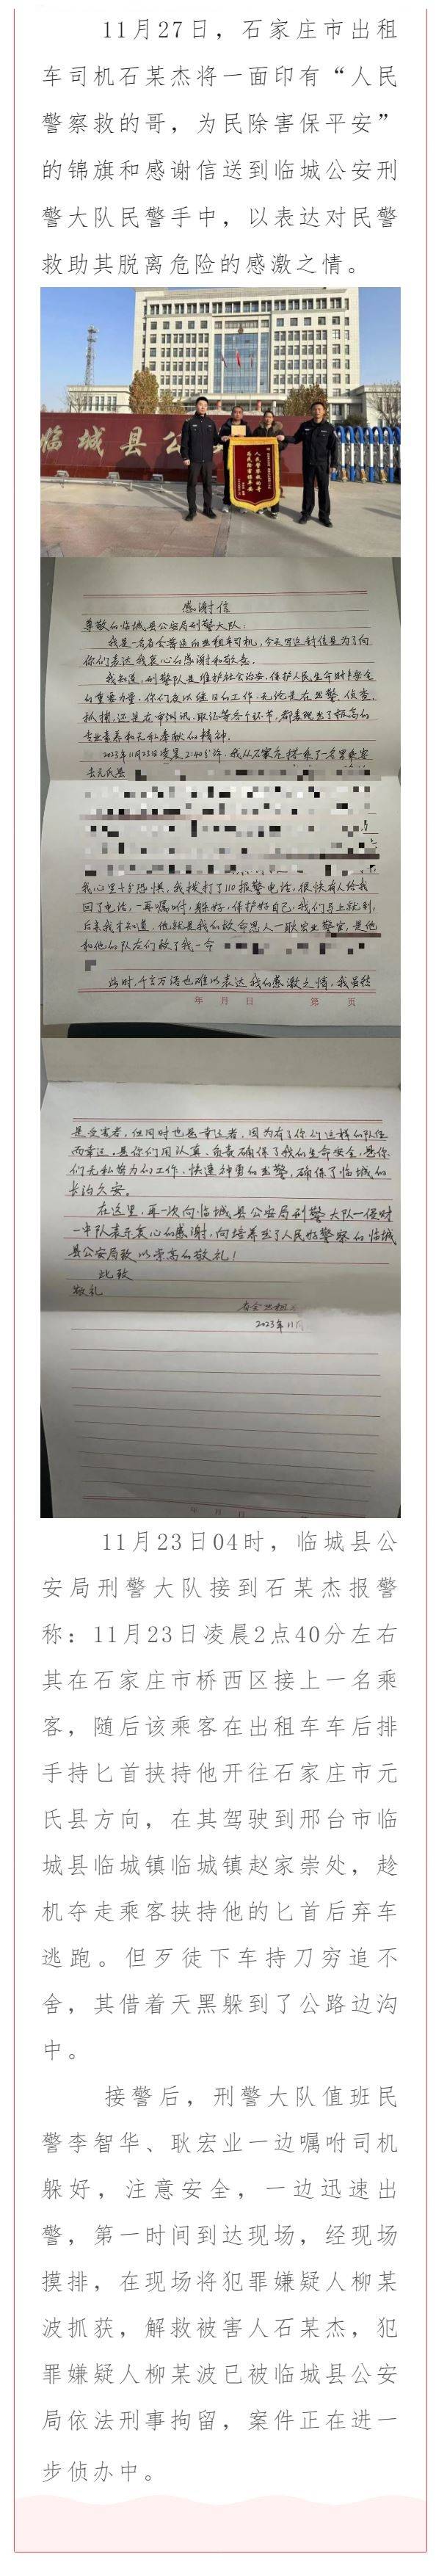 11月27日，石家庄市出租
车司机石某杰将一面印有“人民
警察救的哥，为民除害保平安”
的锦旗和感谢信送到临城公安刑
警大队民警手中，以表达对民警
救助其脱离危险的感激之情。
临城县公
人民警察救的哥
为民除害保平安
感谢信
尊敬的临城县公安局刑警大队：
我是一名省会普通的出租车司机，今天写这封信是为了向
你们表达我衷心的感谢和敬意。
我知道，刑警队是维护社会治安，保护人民生命财产安全
的重要力量，你们夜以继日的工作，无论是在出警，侦查，
抓捕，还是在审讯，取证等各个环节，都表现出了极高的
专业素养和无私奉献的精神。
2023年11月23日凌晨2:40分许，我从石家庄搭乘了一名男乘客
去元氏县
我心里十分恐惧，我拨打了110报警电话，很快有人给我
回了电话，一再嘱咐，躲好，保护好自己，我们马上就到，
后来我才知道，他就是我的救命恩人—耿宏业警官，是他
和他的队友们救了我一命
此时，千言万语也难以表达我的感激之情，我虽然
年 月 日 第 页
是受害者，但同时也是幸运者，因为有了你们这样的队伍
而幸运。是你们用认真、负责确保了我的生命安全，是你
们无私努力的工作，快速神勇的出警，确保了临城的
长治久安。
在这里，再一次向临城县公安局刑警大队—侵财
一中队表示衷心的感谢，向培养出了人民好警察的临城
县公安局致以崇高的敬礼！
此致
敬礼
省会出租
2023年11月
11月23日04时，临城县公
安局刑警大队接到石某杰报警
称：11月23日凌晨2点40分左右
其在石家庄市桥西区接上一名乘
客，随后该乘客在出租车车后排
手持匕首挟持他开往石家庄市元
氏县方向，在其驾驶到邢台市临
城县临城镇临城镇赵家崇处，趁
机夺走乘客挟持他的匕首后弃车
逃跑。但歹徒下车持刀穷追不
舍，其借着天黑躲到了公路边沟
中。
接警后，刑警大队值班民
警李智华、耿宏业一边嘱咐司机
躲好，注意安全，一边迅速出
警，第一时间到达现场，经现场
摸排，在现场将犯罪嫌疑人柳某
波抓获，解救被害人石某杰，犯
罪嫌疑人柳某波已被临城县公安
局依法刑事拘留，案件正在进一
步侦办中。